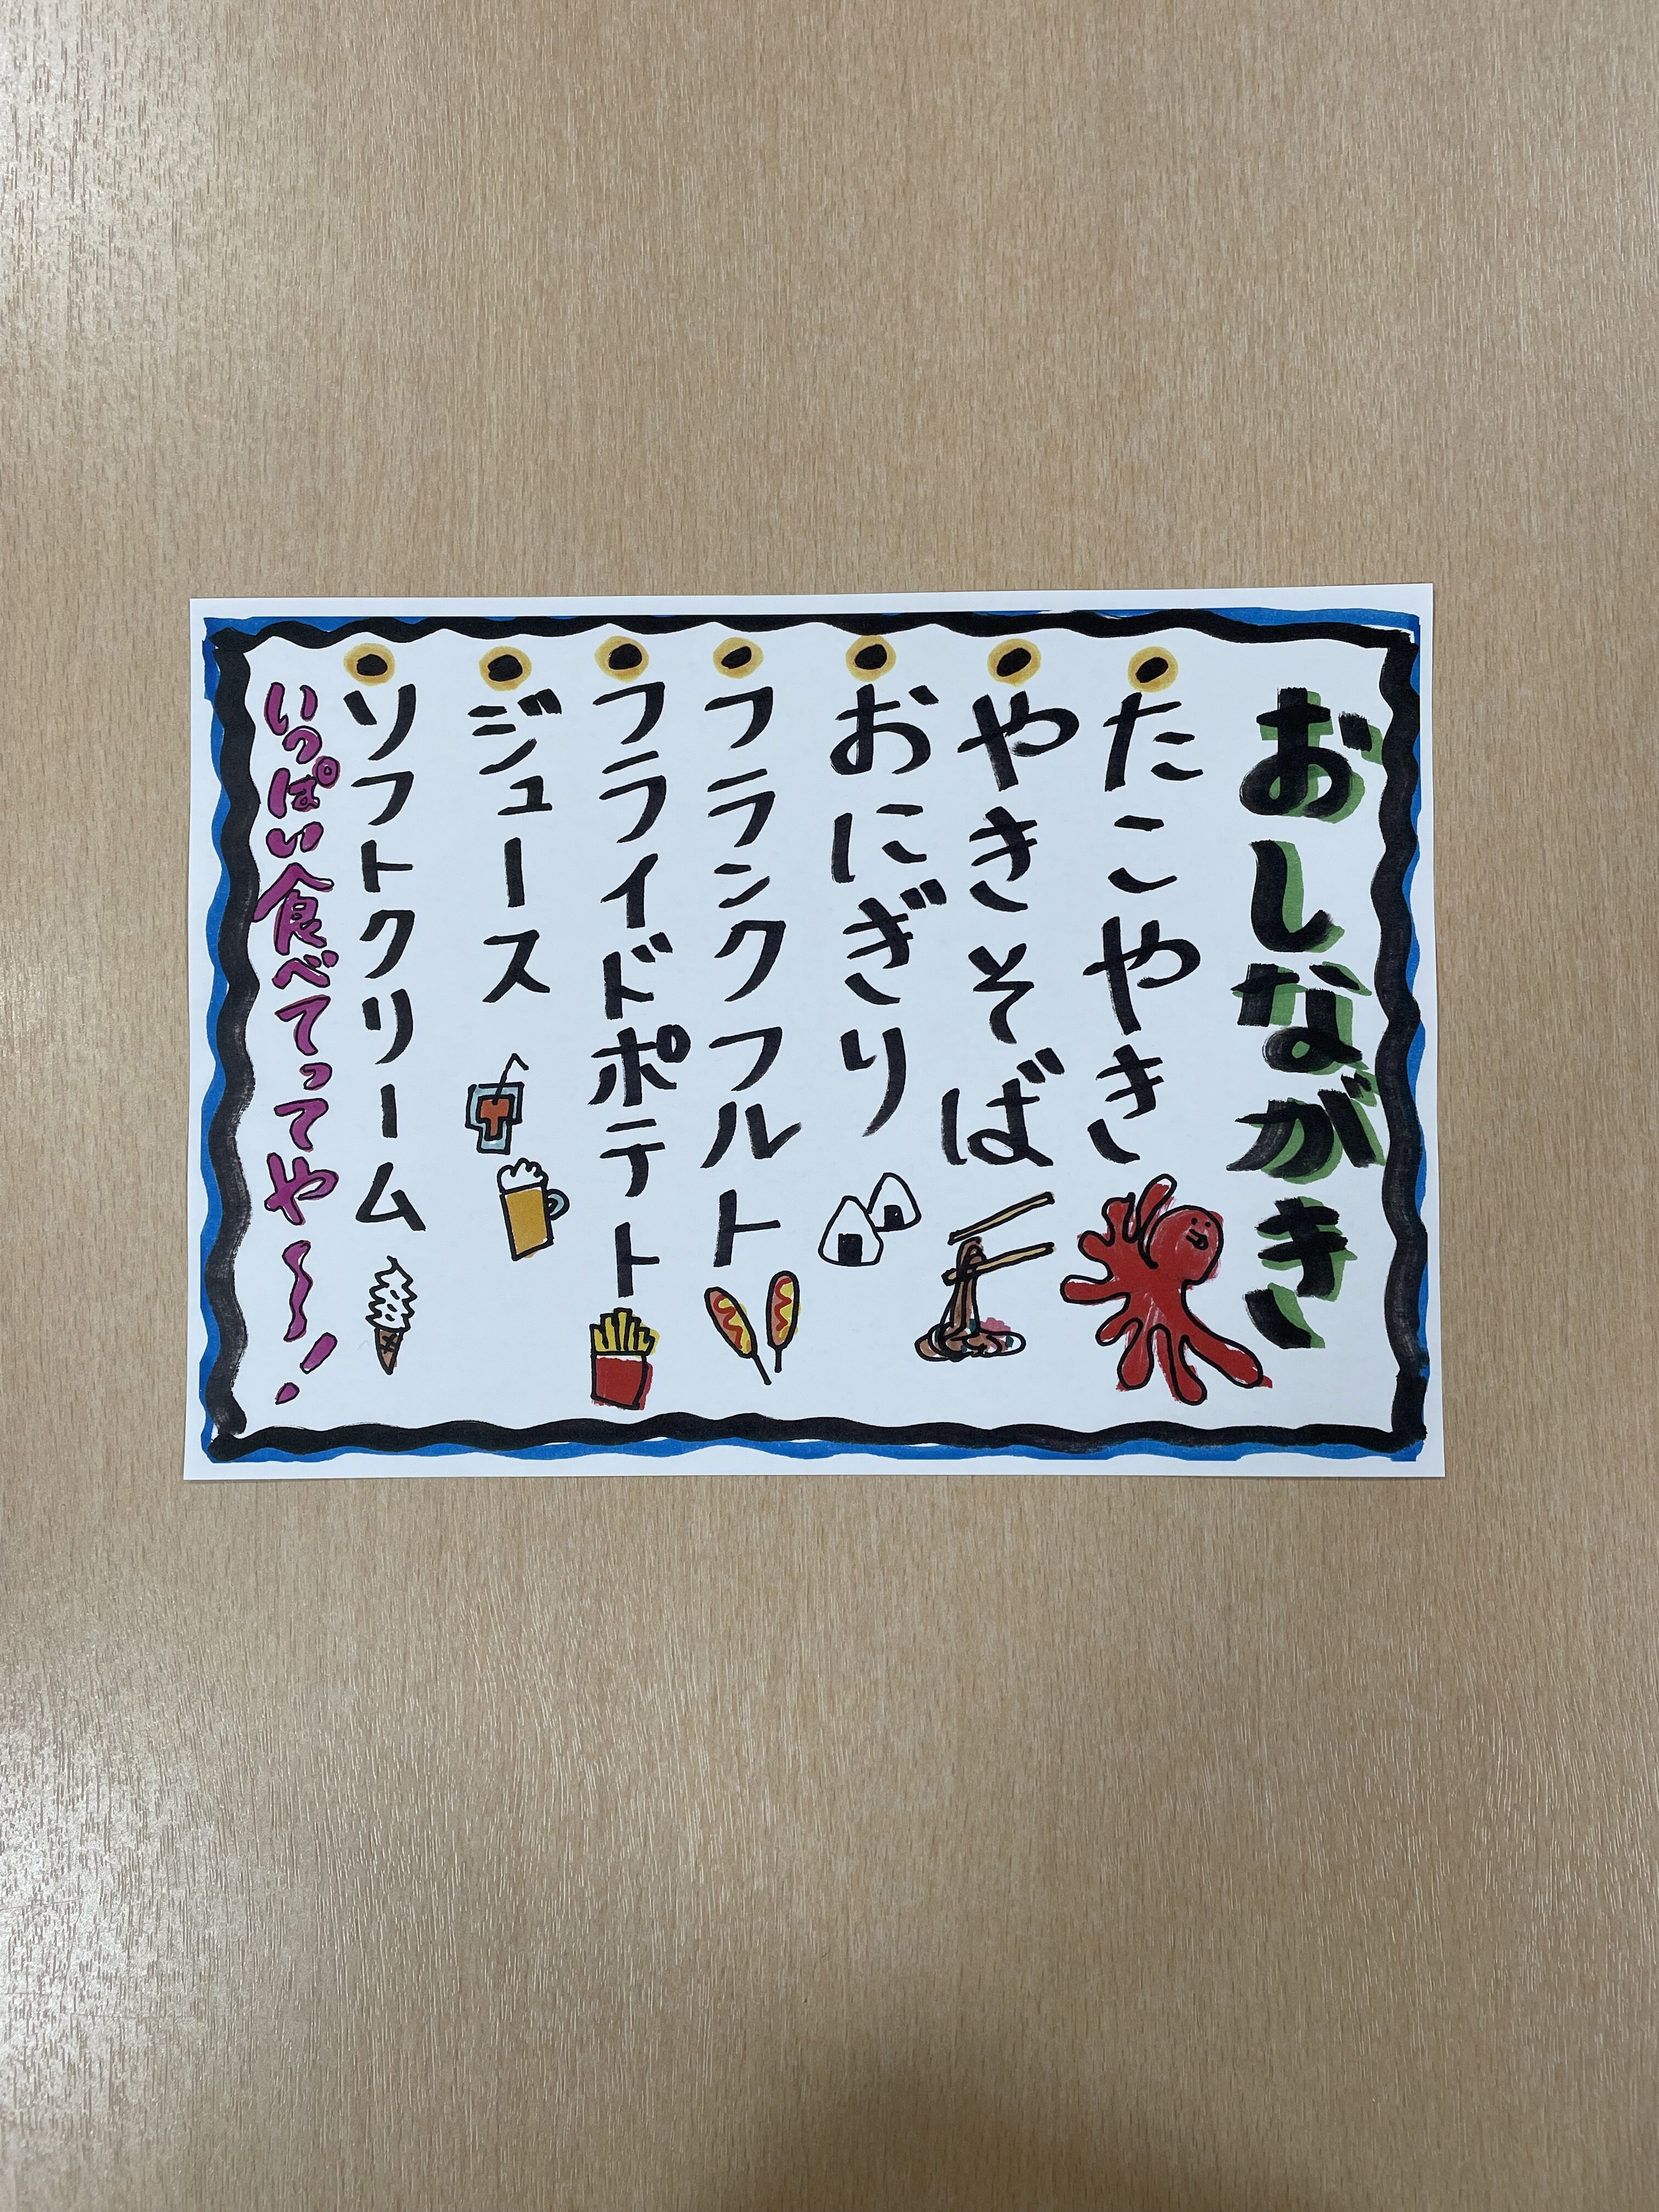 おしながき
●たこやき
●やきそば
●おにぎり
●フランクフルト
●フライドポテト
●ジュース
●ソフトクリーム
いっぱい食べてってや〜！